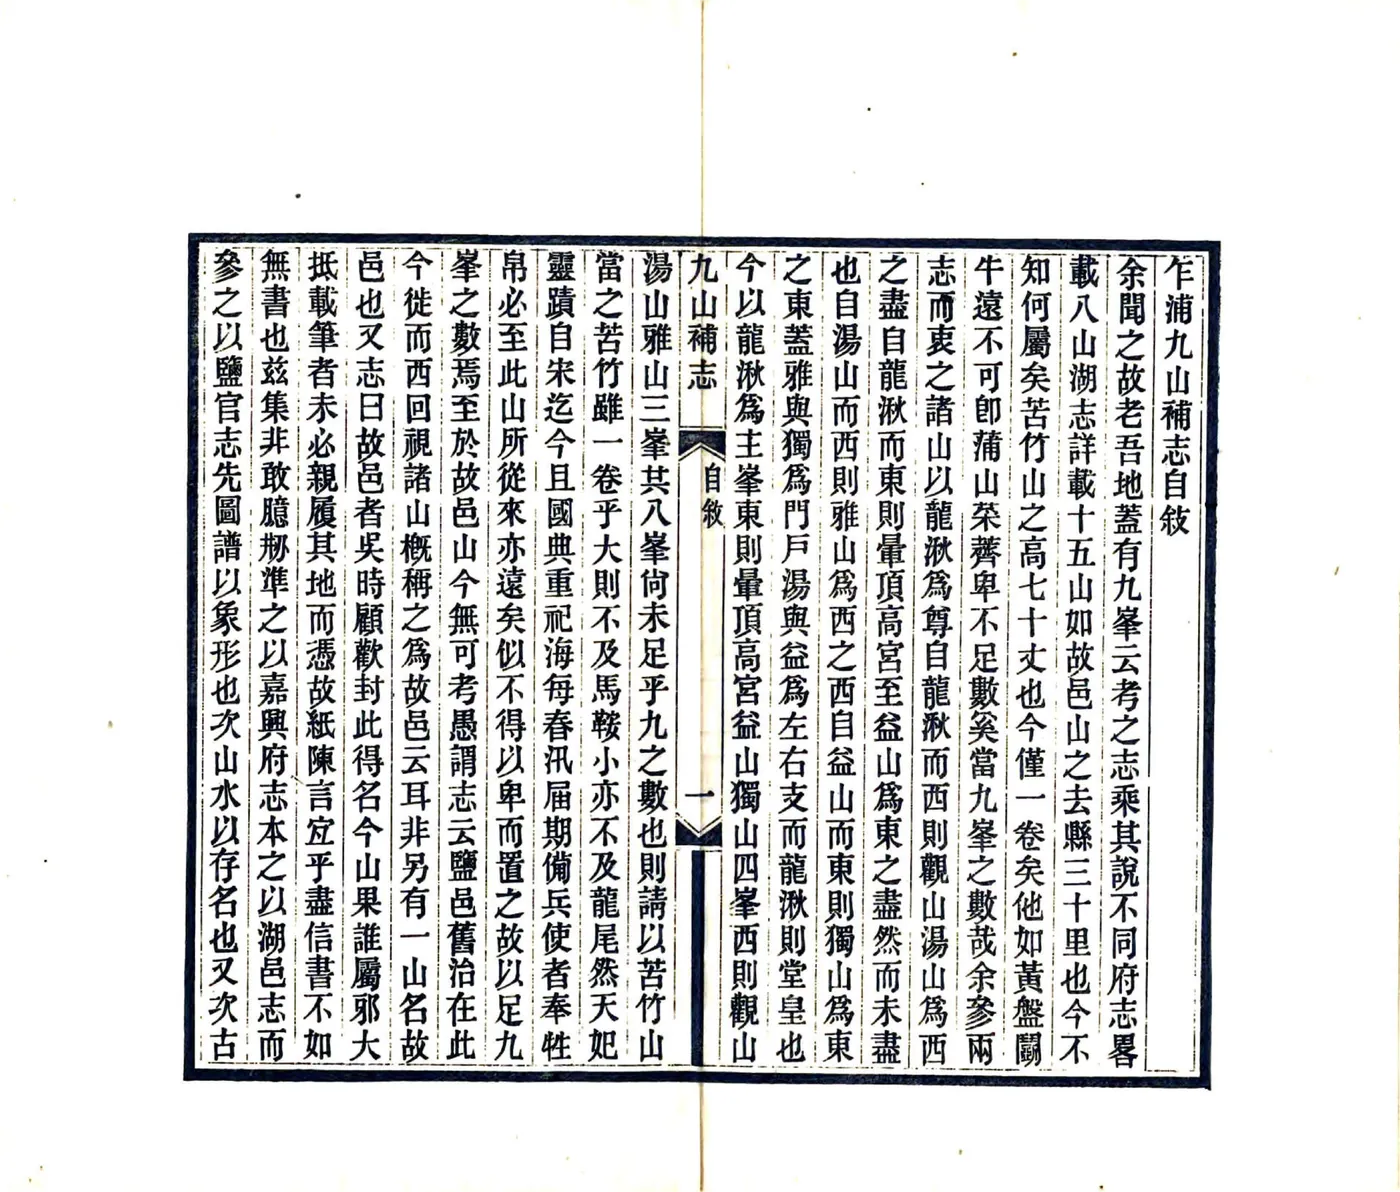 乍浦九山補志自敍
余聞之故老吾地蓋有九峯云考之志乘其說不同府志畧
載八山湖志詳載十五山如故邑山之去縣三十里也今不
知何屬矣苦竹山之高七十丈也今僅一卷矣他如黃盤鬭
牛遠不可卽蒲山菜薺卑不足數奚當九峯之數哉余參兩
志而衷之諸山以龍湫爲尊自龍湫而西則觀山湯山爲西
之盡自龍湫而東則暈頂高宮至益山爲東之盡然而未盡
也自湯山而西則雅山爲西之西自益山而東則獨山爲東
之東蓋雅與獨爲門戶湯與益爲左右支而龍湫則堂皇也
今以龍湫爲主峯東則暈頂高宮益山獨山四峯西則觀山
九山補志
自敍
一
湯山雅山三峯其八峯尙未足乎九之數也則請以苦竹山
當之苦竹雖一卷乎大則不及馬鞍小亦不及龍尾然天妃
靈蹟自宋迄今且國典重祀海每春汛届期備兵使者奉牲
帛必至此山所從來亦遠矣似不得以卑而置之故以足九
峯之數焉至於故邑山今無可考愚謂志云鹽邑舊治在此
今徙而西回視諸山槪稱之爲故邑云耳非另有一山名故
邑也又志曰故邑者吳時顧歡封此得名今山果誰屬邪大
抵載筆者未必親履其地而憑故紙陳言宐乎盡信書不如
無書也兹集非敢臆刱準之以嘉興府志本之以湖邑志而
參之以鹽官志先圖譜以象形也次山水以存名也又次古